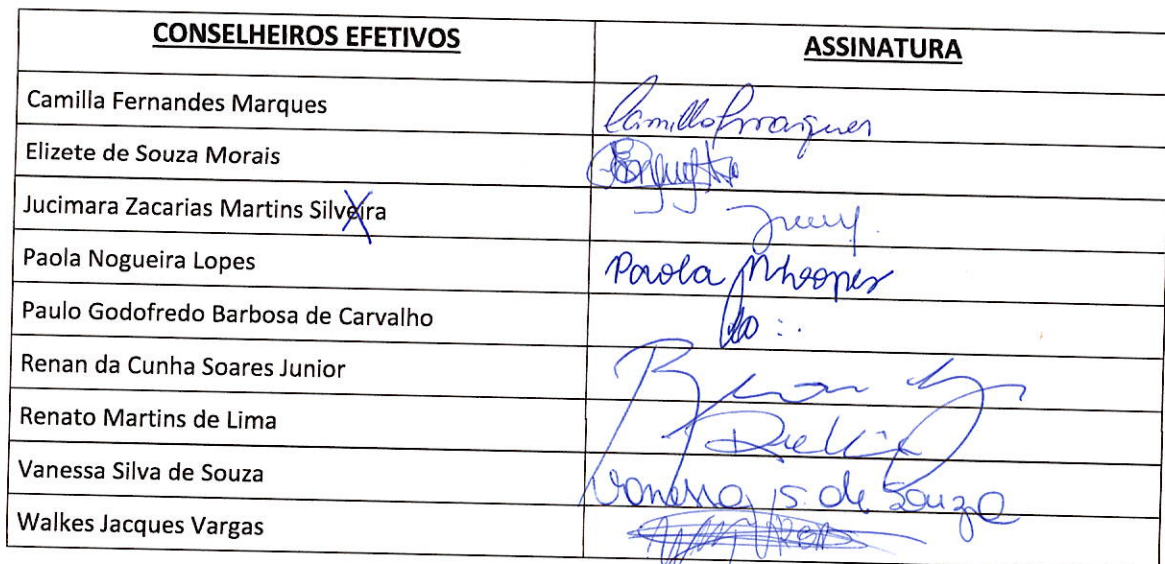 CONSELHEIROS EFETIVOS ASSINATURA
Camilla Fernandes Marques
Elizete de Souza Morais
Jucimara Zacarias Martins Silveira
Paola Nogueira Lopes Paola
Paulo Godofredo Barbosa de Carvalho
Renan da Cunha Soares Junior
Renato Martins de Lima
Vanessa Silva de Souza Vanessa S. de Souza
Walkes Jacques Vargas